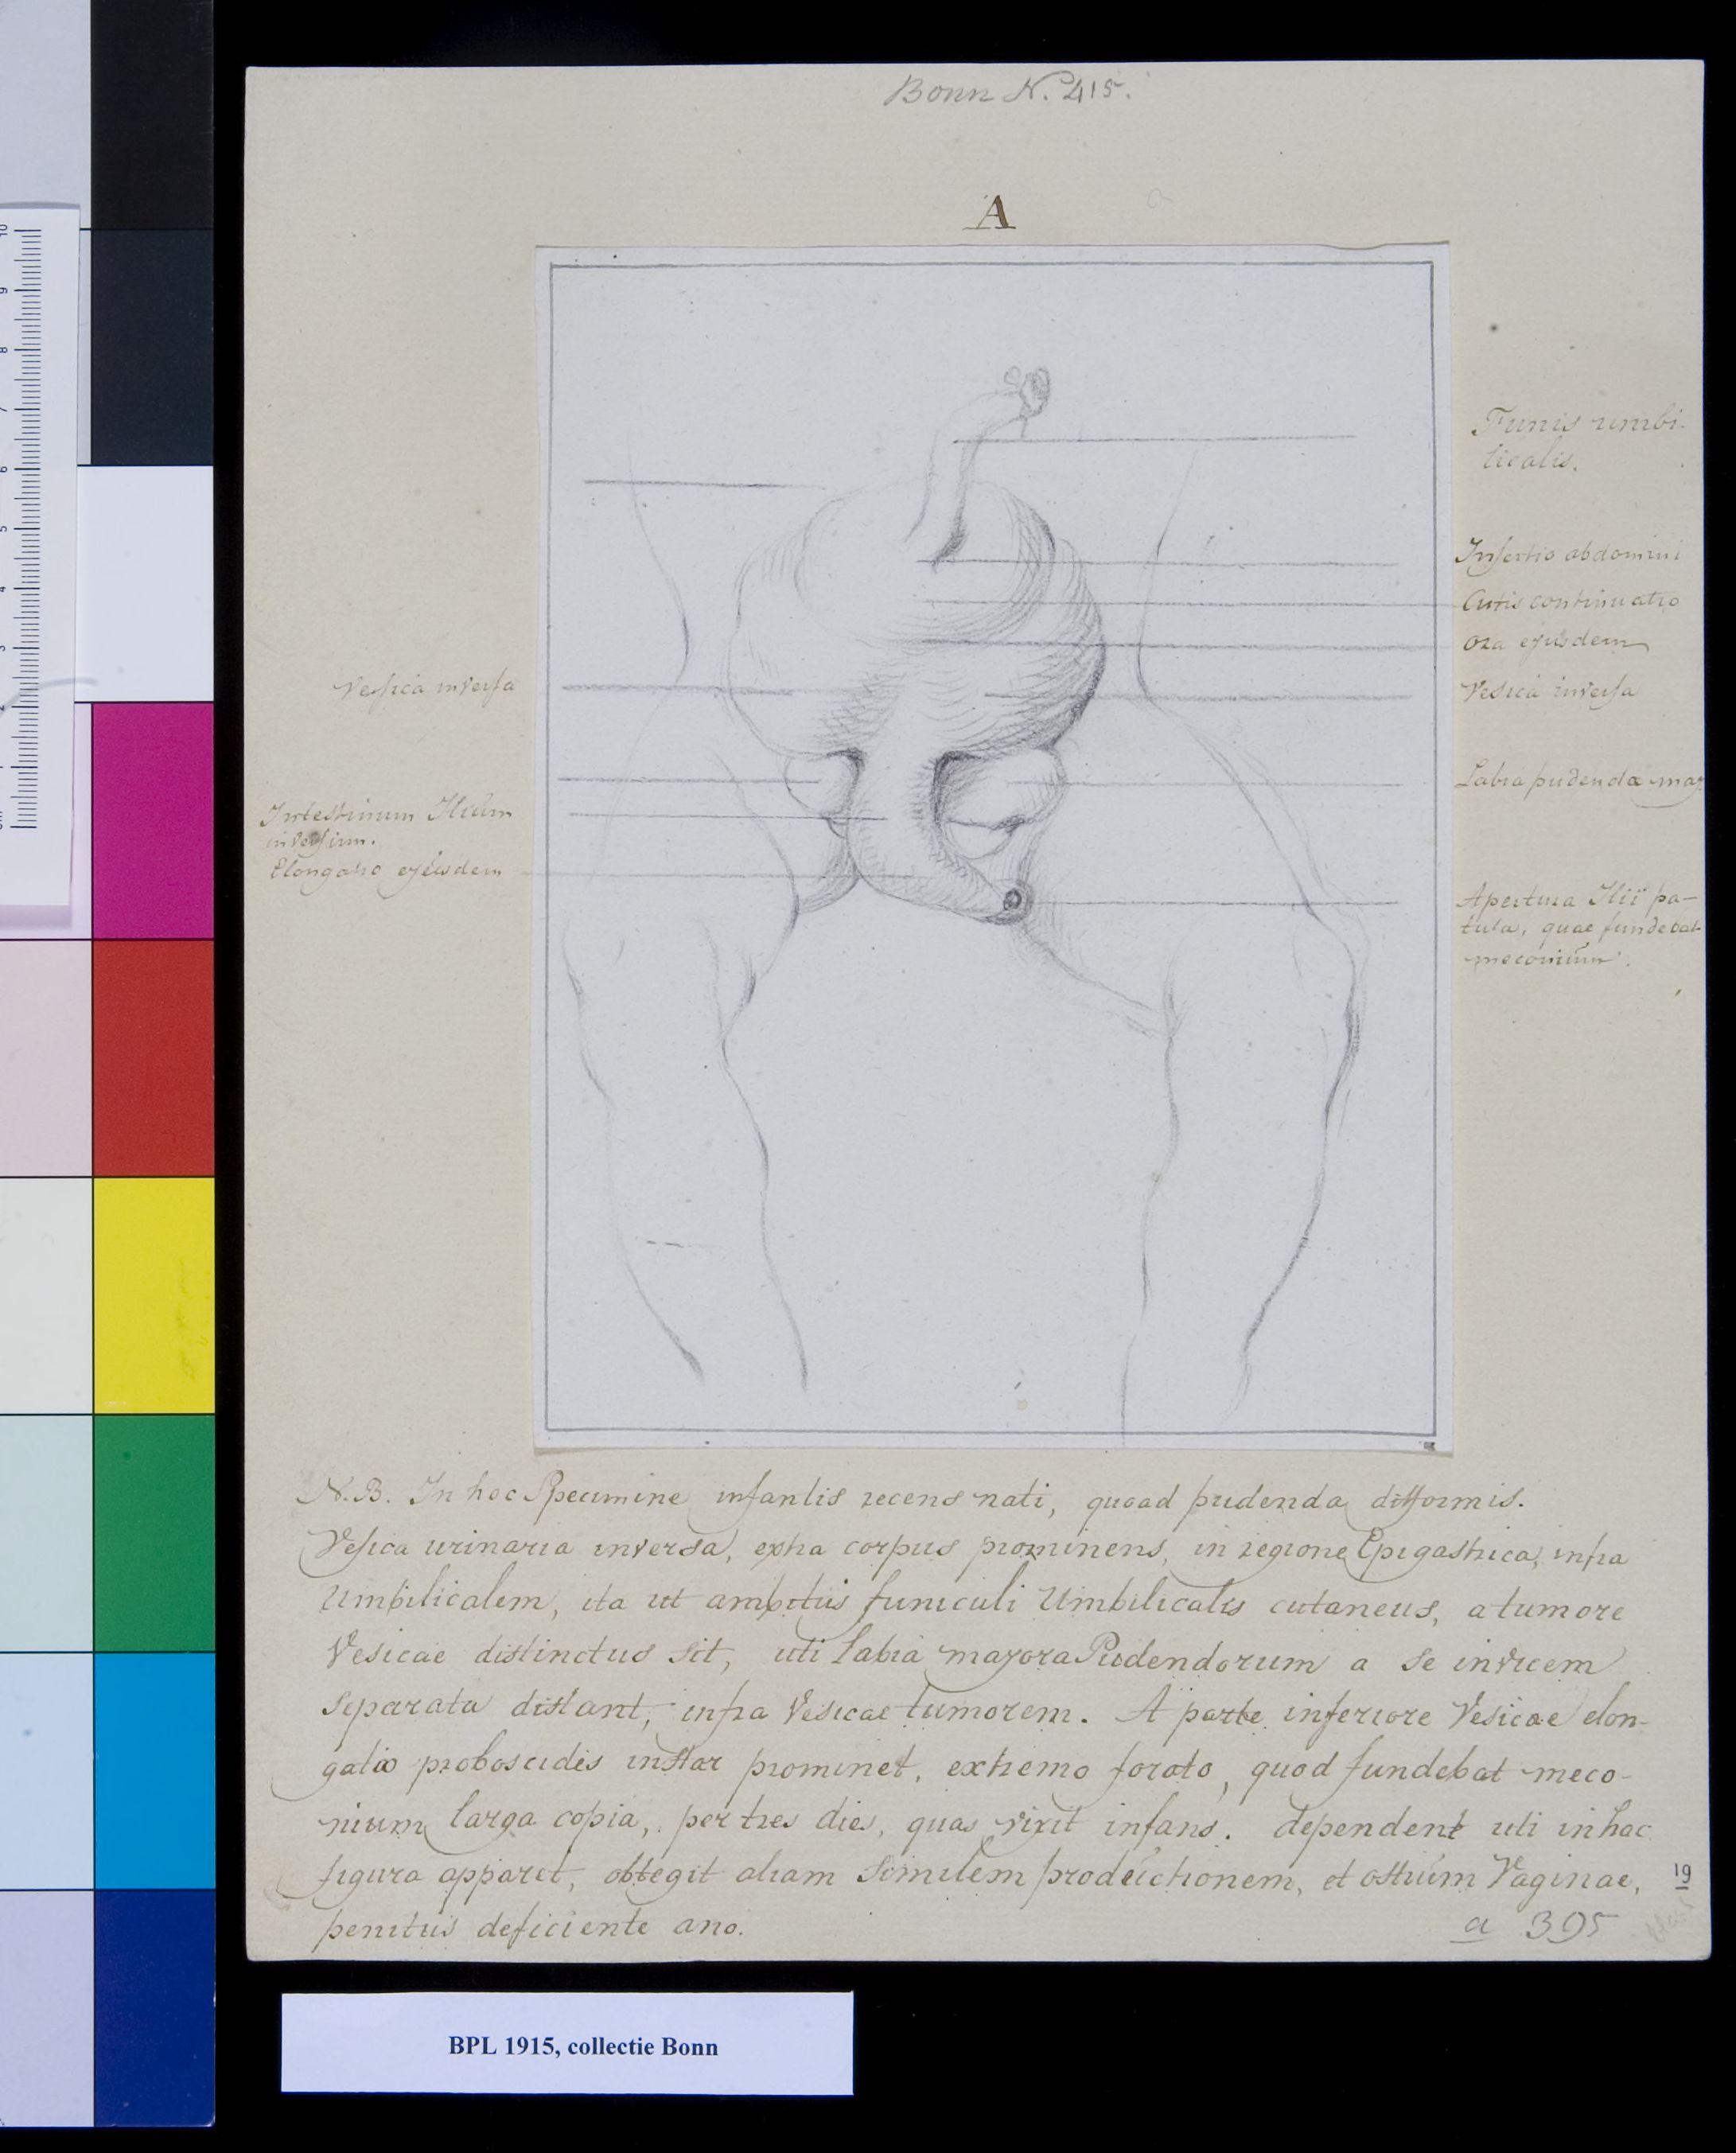 Bonn N. 415.
A
Funis umbi-
licalis.
Insertio abdomini
Cutis continuatio
ora ejusdem
Vesica inversa
Vesica inversa
Labia pudenda maj.
Intestinum Ilium
inversum.
Elongatio ejusdem
Apertura Ilii pa-
tula, quae fundebat
meconium.
N.B. In hoc Specimine infantis recens nati, quoad pudenda difformis.
Vesica urinaria inversa, extra corpus prominens, in regione Epigastrica, infra
Umbilicalem, ita ut ambitus funiculi Umbilicalis cutaneus, a tumore
Vesicae distinctus sit, uti Labia majora Pudendorum a se invicem
separata distant, infra Vesicae tumorem. A parte inferiore Vesicae elon-
gatio proboscidis instar prominet, extremo forato, quod fundebat meco-
nium larga copia, per tres dies, quas vixit infans. dependent uti in hac
figura apparet, obtegit aliam similem productionem, et ostium Vaginae,
penitus deficiente ano.
19
a 395
BPL 1915, collectie Bonn
10
9
8
7
6
5
4
3
2
cm